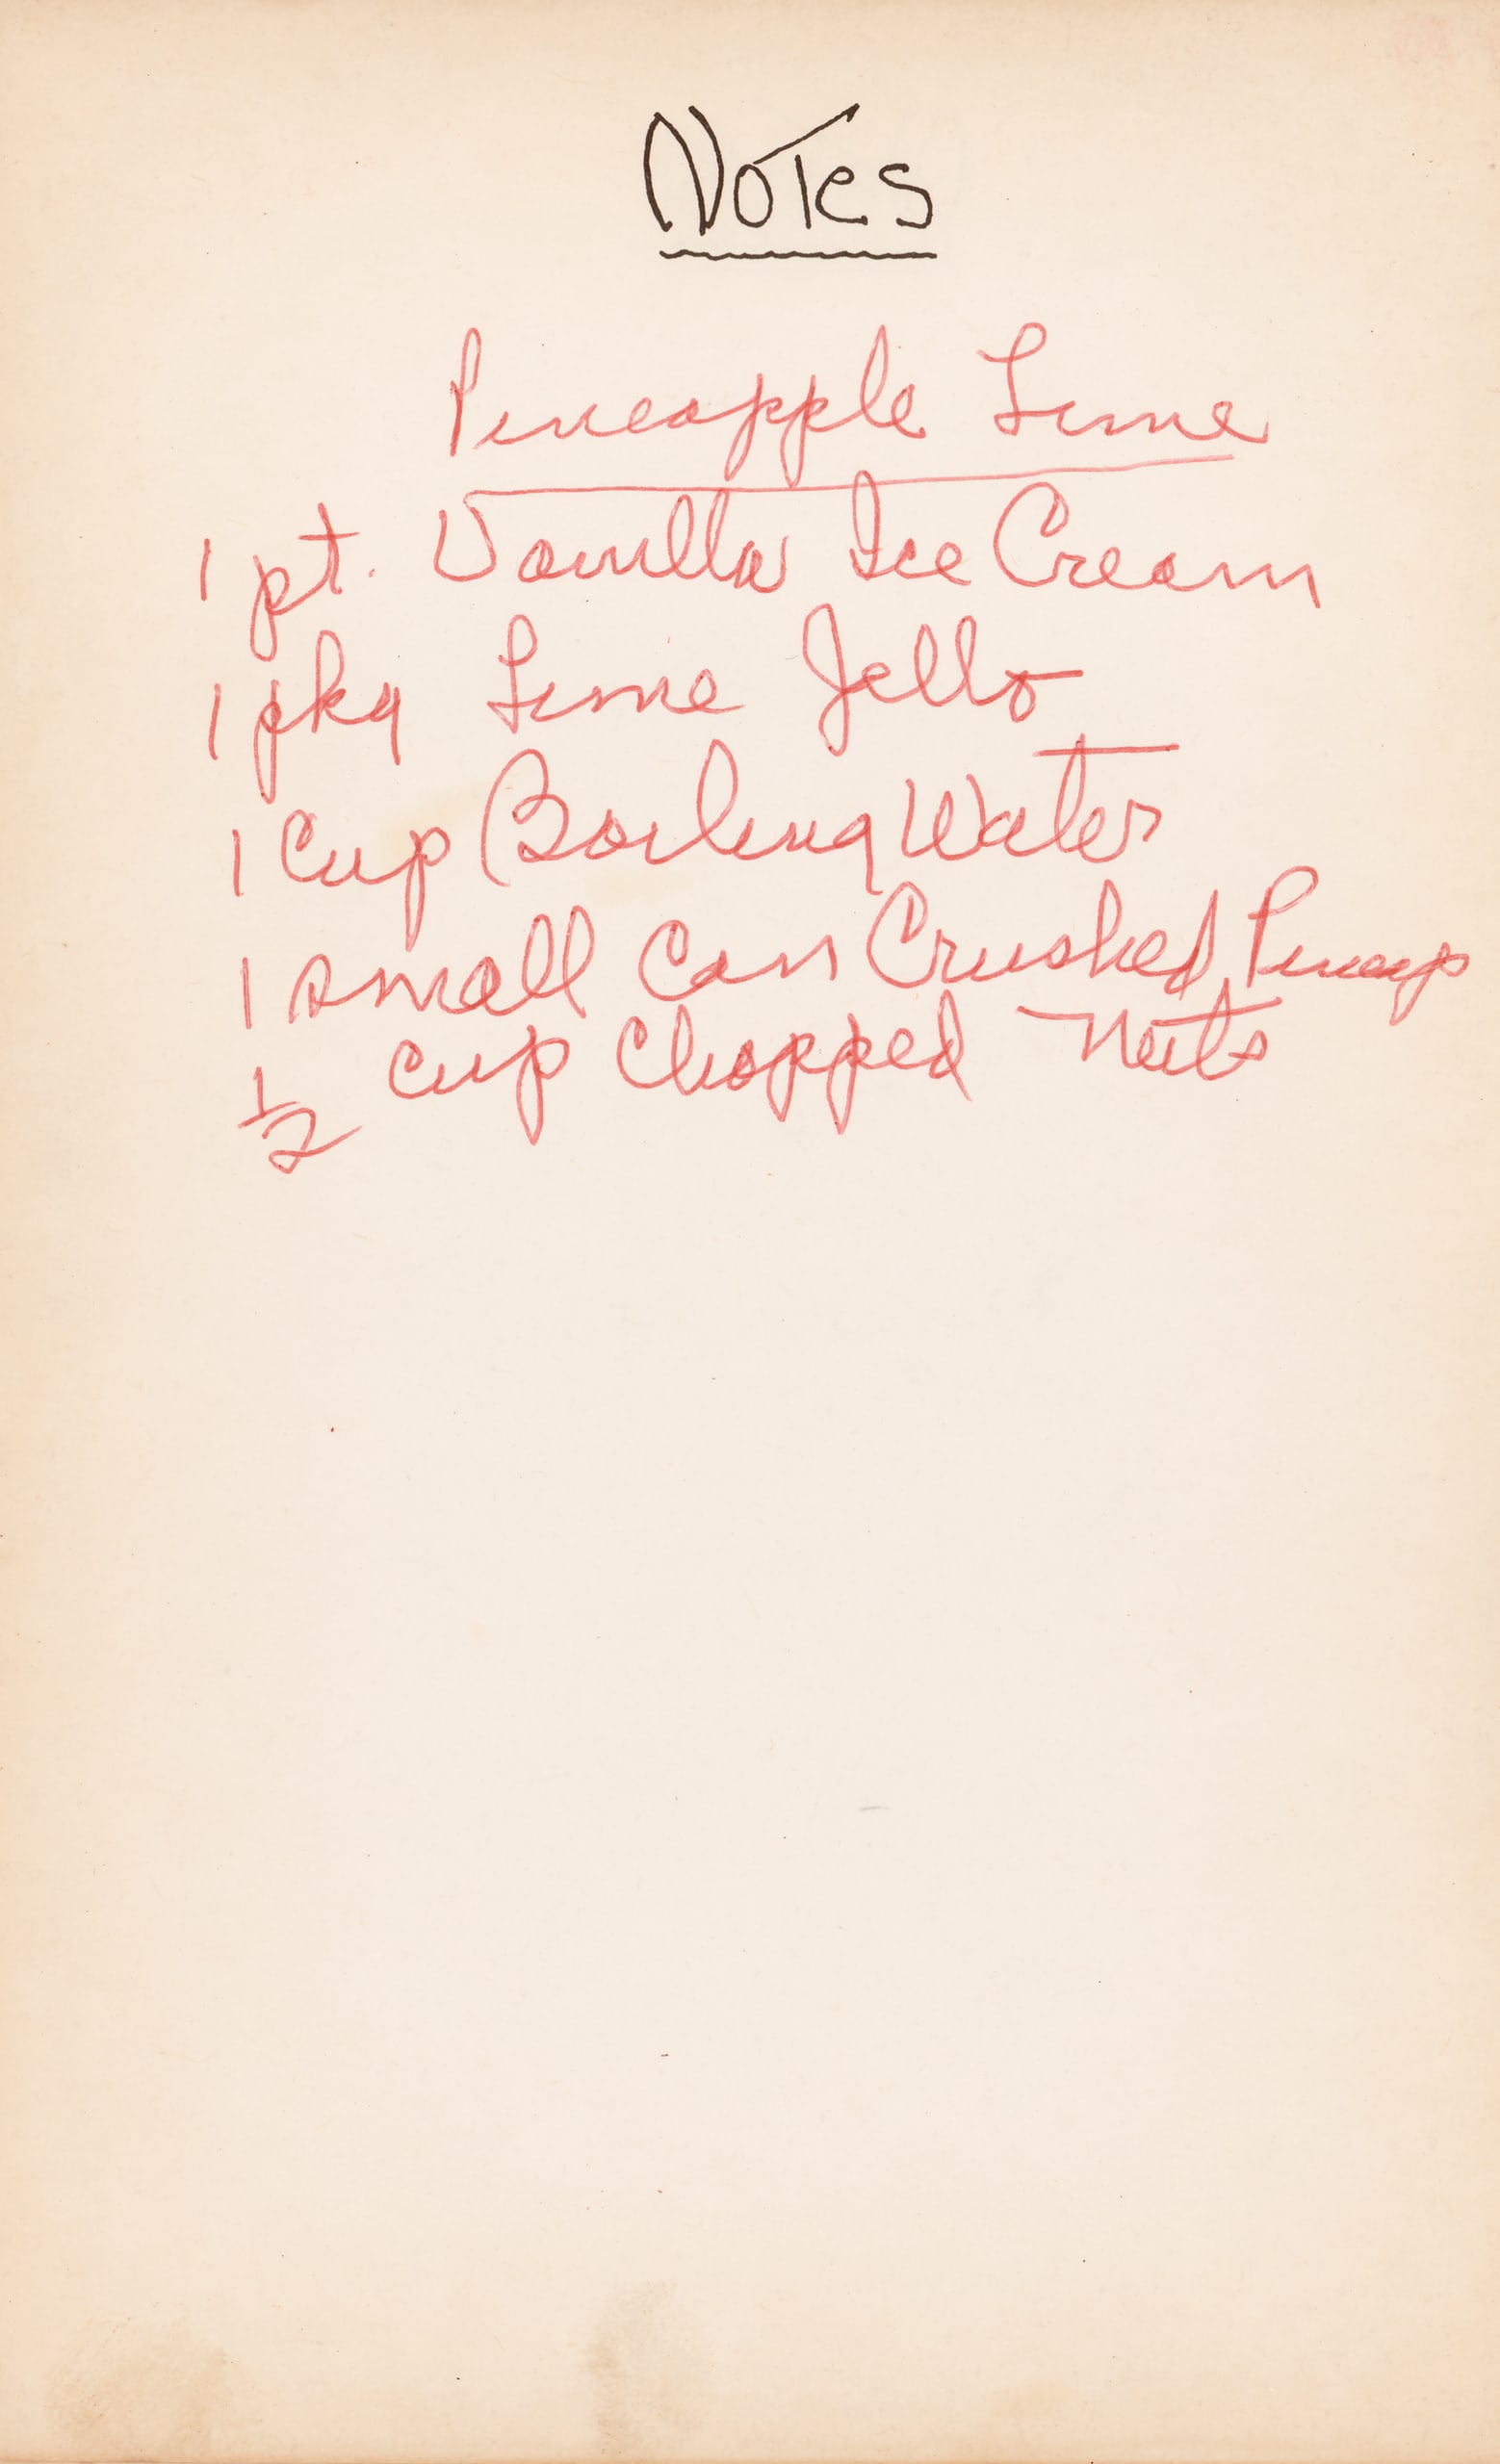 Notes
Pineapple Lime
1 pt. Vanilla Ice Cream
1 pkg Lime Jello
1 Cup Boiling Water
1 small Can Crushed Pineap
1/2 cup Chopped Nuts